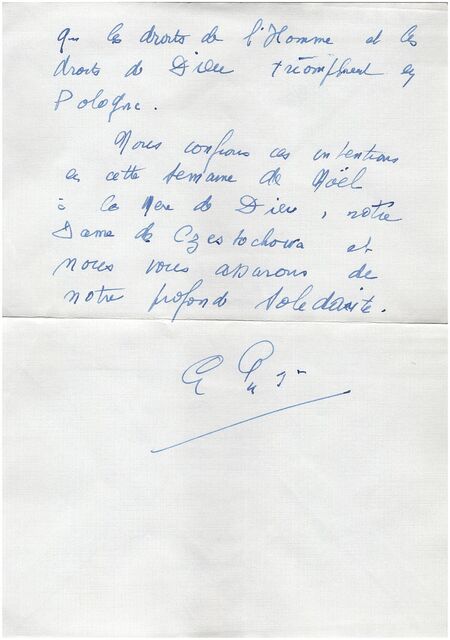 que les droits de l'Homme et les
droits de Dieu triomphent en
Pologne.
Nous confions ces intentions
en cette semaine de Noël
à la Mère de Dieu, notre
Dame de Czestochowa et
nous vous assurons de
notre profonde solidarité.